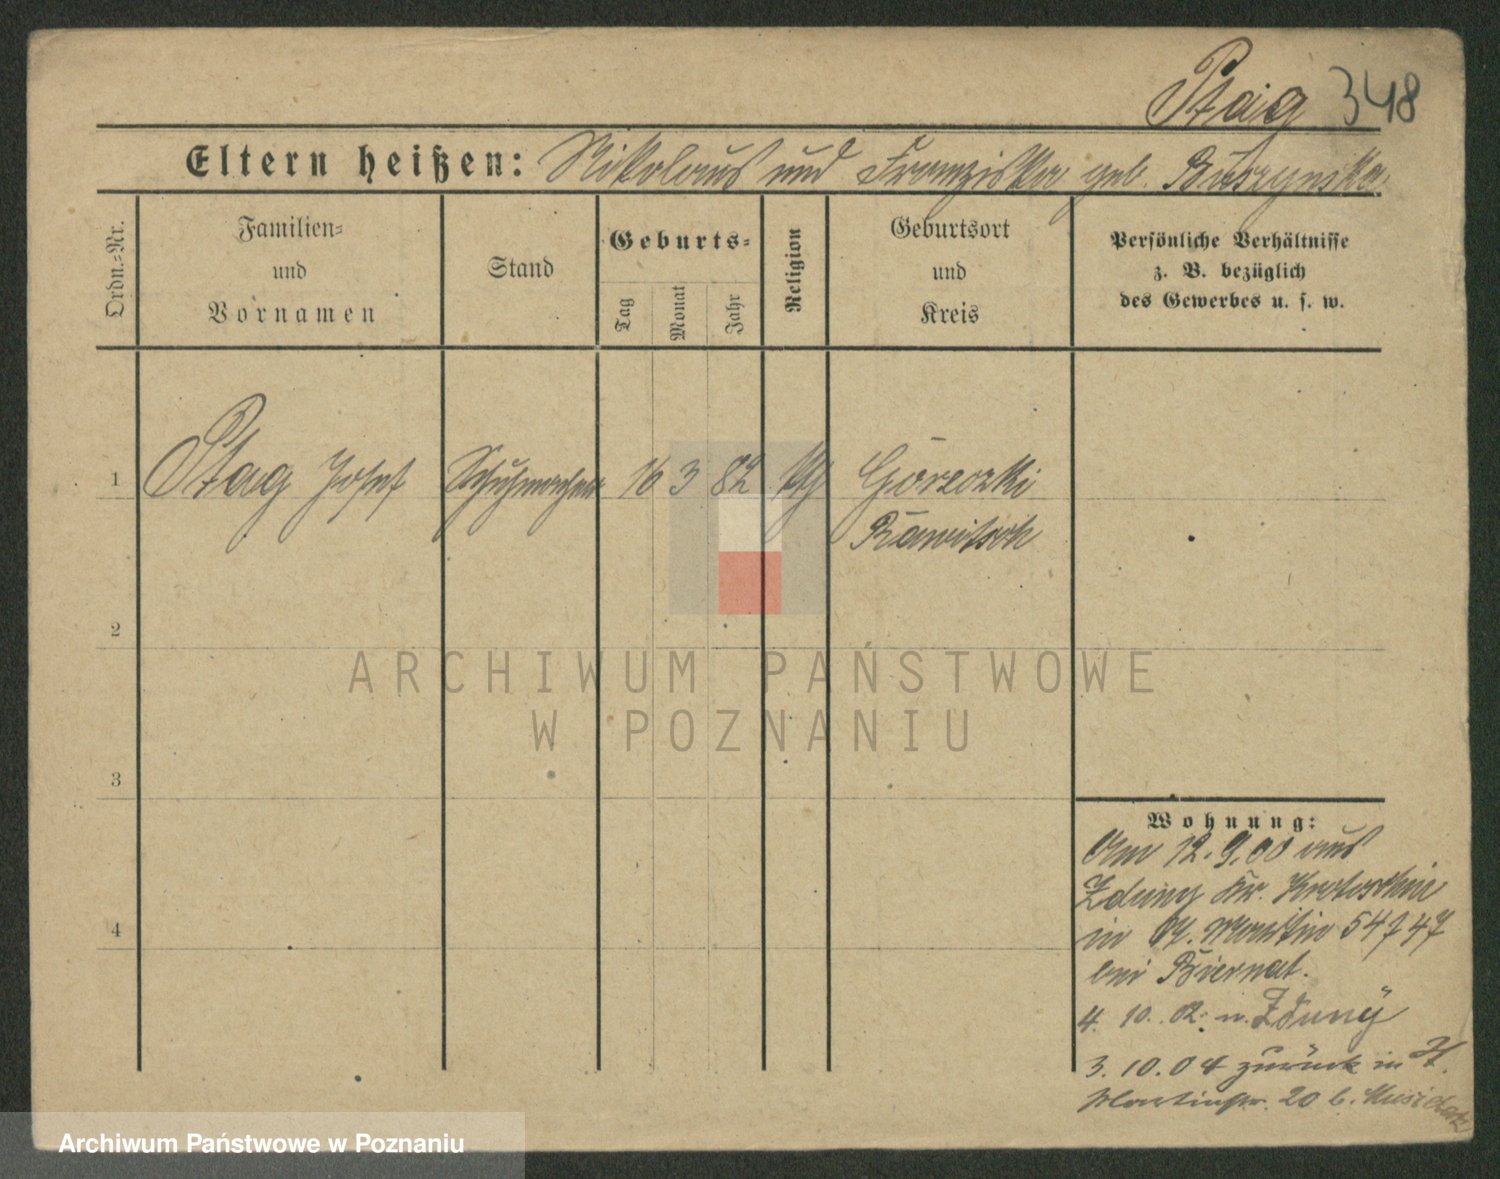 Ptaig 348
Eltern heißen: Nikolaus und Franziska geb. Buszynska
Ordn.-Nr.
Familien-
und
Vornamen
Stand
Geburts-
Tag
Monat
Jahr
Religion
Geburtsort
und
Kreis
Persönliche Verhältnisse
z. B. bezüglich
des Gewerbes u. s. w.
1 Ptag Josef Schuhmacher 16 3 82 Góreczki
Rawitsch
2
ARCHIWUM PAŃSTWOWE
W POZNANIU
3
Wohnung:
Am 12.9.00 aus
Zduny Kr. Krotoschin
in St. Martin 54/47
4
bei Biernat.
4. 10. 02. n. Zduny
3. 10. 04 zurück in St.
Martinstr. 20 b.
Archiwum Państwowe w Poznaniu